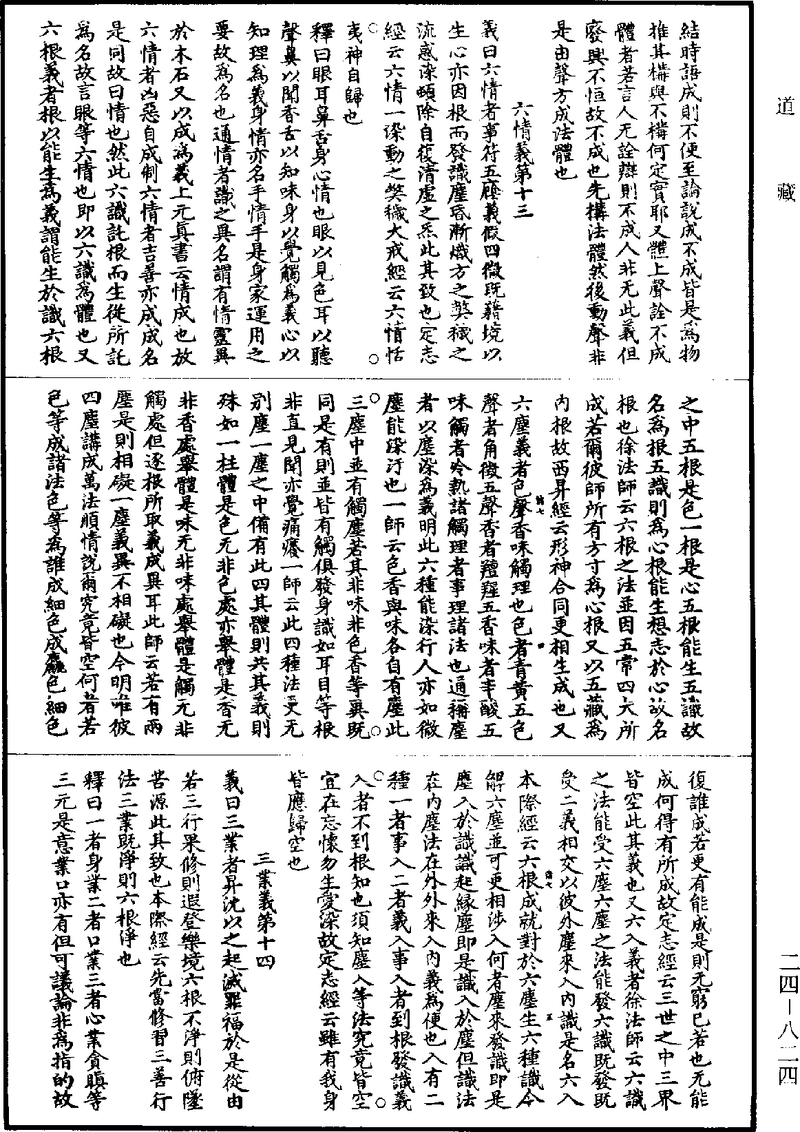 道藏
結時語成則不便至論說成不成皆是爲物
推其構與不構何定實耶又體上聲詮不成
體者若言人无詮辯則不成人非无此義但
廢興不恒故不成也先構法體然後動聲非
是由聲方成法體也
六情義第十三
義曰六情者事符五廕義假四微既藉境以
生心亦因根而發識塵昏漸熾方之獘穢之
流惑染頓除自復清虛之炁此其致也定志
經云六情一染動之獘穢大戒經云六情恬
夷神自歸也
釋曰眼耳鼻舌身心情也眼以見色耳以聽
聲鼻以聞香舌以知味身以覺觸爲義心以
知理爲義身情亦名手情手是身家運用之
要故爲名也通情者識之異名謂有情靈異
於木石又以成爲義上元真書云情成也故
六情者凶惡自成制六情者吉善亦成成名
是同故曰情也然此六識託根而生從所託
爲名故言眼等六情也即以六識爲體也又
六根義者根以能生爲義謂能生於識六根
之中五根是色一根是心五根能生五識故
名爲根五識則爲心根能生想志於心故名
根也徐法師云六根之法並因五常四大所
成若爾彼師所有方寸爲心根又以五藏爲
內根故西昇經云形神合同更相生成也又
六塵義者色聲香味觸理也色者青黃五色
聲者角徵五聲香者羶羶五香味者辛酸五
味觸者冷熱諸觸理者事理諸法也通稱塵
者以塵染爲義明此六種能染行人亦如微
塵能染汙也一師云色香與味各自有塵此
三塵中並有觸塵若其非味非色香等異既
同是有則並皆有觸俱發身識如耳目等根
非直見聞亦覺痛癢一師云此四種法更无
別塵一塵之中備有此四其體則共其義則
殊如一柱體是色无非色處亦舉體是香无
非香處舉體是味无非味處舉體是觸无非
觸處但逐根所取義成異耳此師云若有兩
塵是則相礙一塵義異不相礙也今明唯彼
四塵講成萬法順情說爾究竟皆空何者若
色等成諸法色等爲誰成細色成麤色細色
復誰成若更有能成是則无窮已若也无能
成何得有所成故定志經云三世之中三界
皆空此其義也又六入義者徐法師云六識
之法能受六塵六塵之法能發六識既發既
受二義相交以彼外塵來入內識是名六入
本際經云六根成就對於六塵生六種識今
解六塵並可更相涉入何者塵來發識即是
塵入於識識起緣塵即是識入於塵但識法
在內塵法在外外來入內義爲便也入有二
種一者事入二者義入事入者到根發識義
入者不到根知也須知塵入等法究竟皆空
宜在忘懷勿生愛深故定志經云雖有我身
皆應歸空也
三業義第十四
義曰三業者昇沈以之起滅罪福於是從由
若三行果修則遐登樂境六根不淨則俯墜
苦源此其致也本際經云先當修習三善行
法三業既淨則六根淨也
釋曰一者身業二者口業三者心業貪瞋等
三元是意業口亦有但可議論非爲指的故
二四－八二四